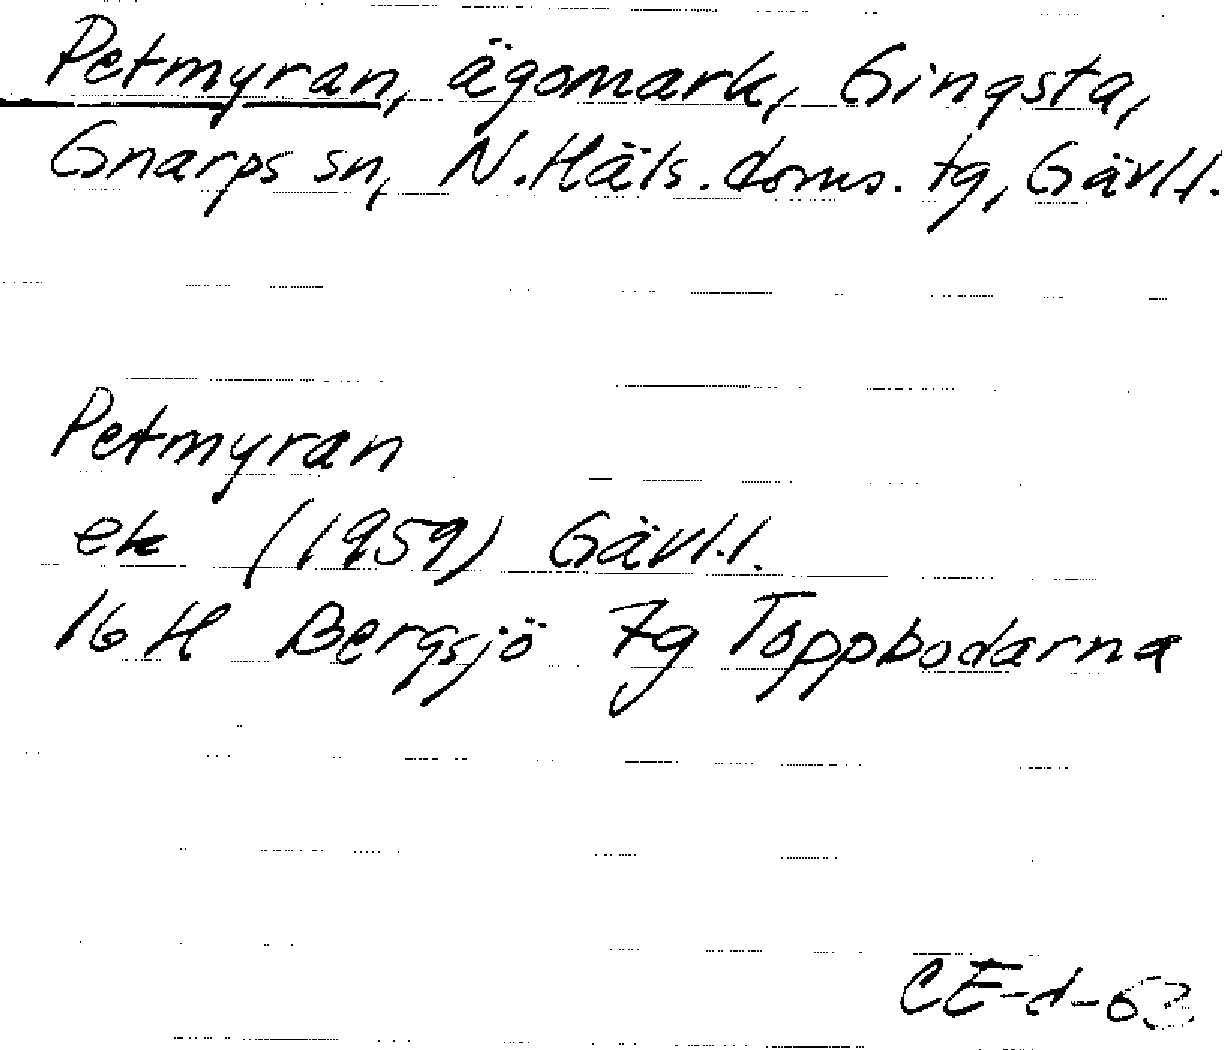 Petmyran, ägomark, Gingsta,
Gnarps sn, N. Häls. doms. tg, Gävl.l.
Petmyran
ek (1959) Gävl.l.
16 H Bergsjö 7g Toppbodarna
CE-d-63